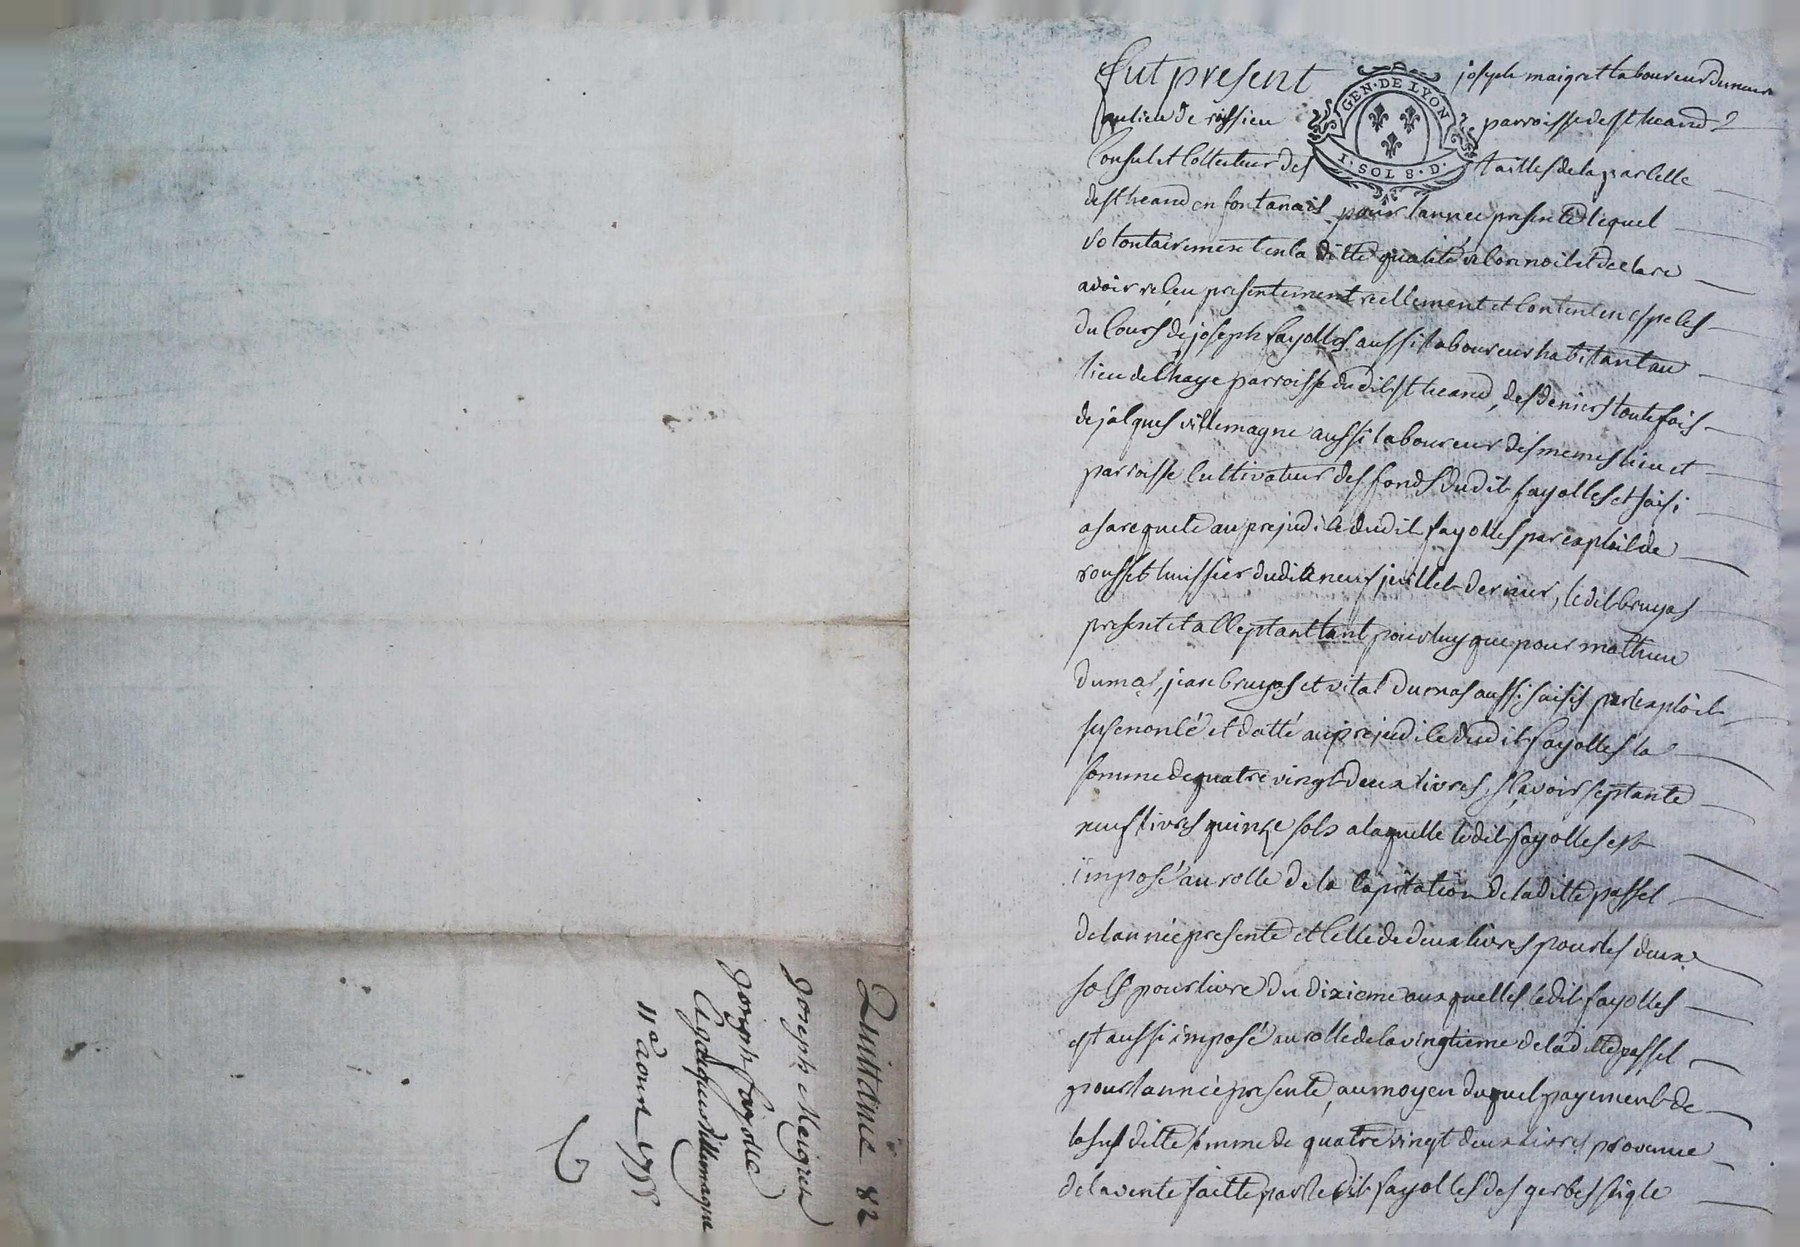 Quittance 82
Joseph Maigret
Joseph fayolle
a jacques villemagne
11e aoust
fut present joseph maigret laboureur demeurant
au lieu de rissieu parroisse de st heand
GEN·DE LYON
I·SOL 8·D·
Consul et Collecteur des tailles de la parcelle
de st heand en fontanais pour lannee presente lequel
volontairement en la ditte qualité reconnoit et declare
avoir receu presentement reellement et content en especes
du Cours de joseph fayolles aussi laboureur habitant au
lieu de parroisse dudit st heand, des deniers toutefois
de jacques villemagne aussi laboureur des memes lieu et
parroisse Cultivateur des fonds dudit fayolles et saisi
a sa requete au prejudice dudit fayolles par exploit de
rousset huissier dudit neuf juillet dernier, le dit bruyas
present et acceptant tant pour luy que pour mathieu
dumas, jean bruyas et vital dumas aussi saisis par exploit
susenoncé et datté au prejudice dudit fayolles la
somme de quatre vingt deux livres, sçavoir septante
neuf livres quinze sols a laquelle ledit fayolles est
imposé au rolle de la Capitation de la ditte passel
de lannee presente et celle de deux livres pour les deux
sols pour livre du dixieme auxquelles ledit fayolles
est aussi imposé au rolle de la vingtieme de la ditte passel
pour lannee presente, au moyen duquel payement de
la sus ditte somme de quatre vingt deux livres provenue
de la vente faitte par le dit fayolles des gerbes seigle